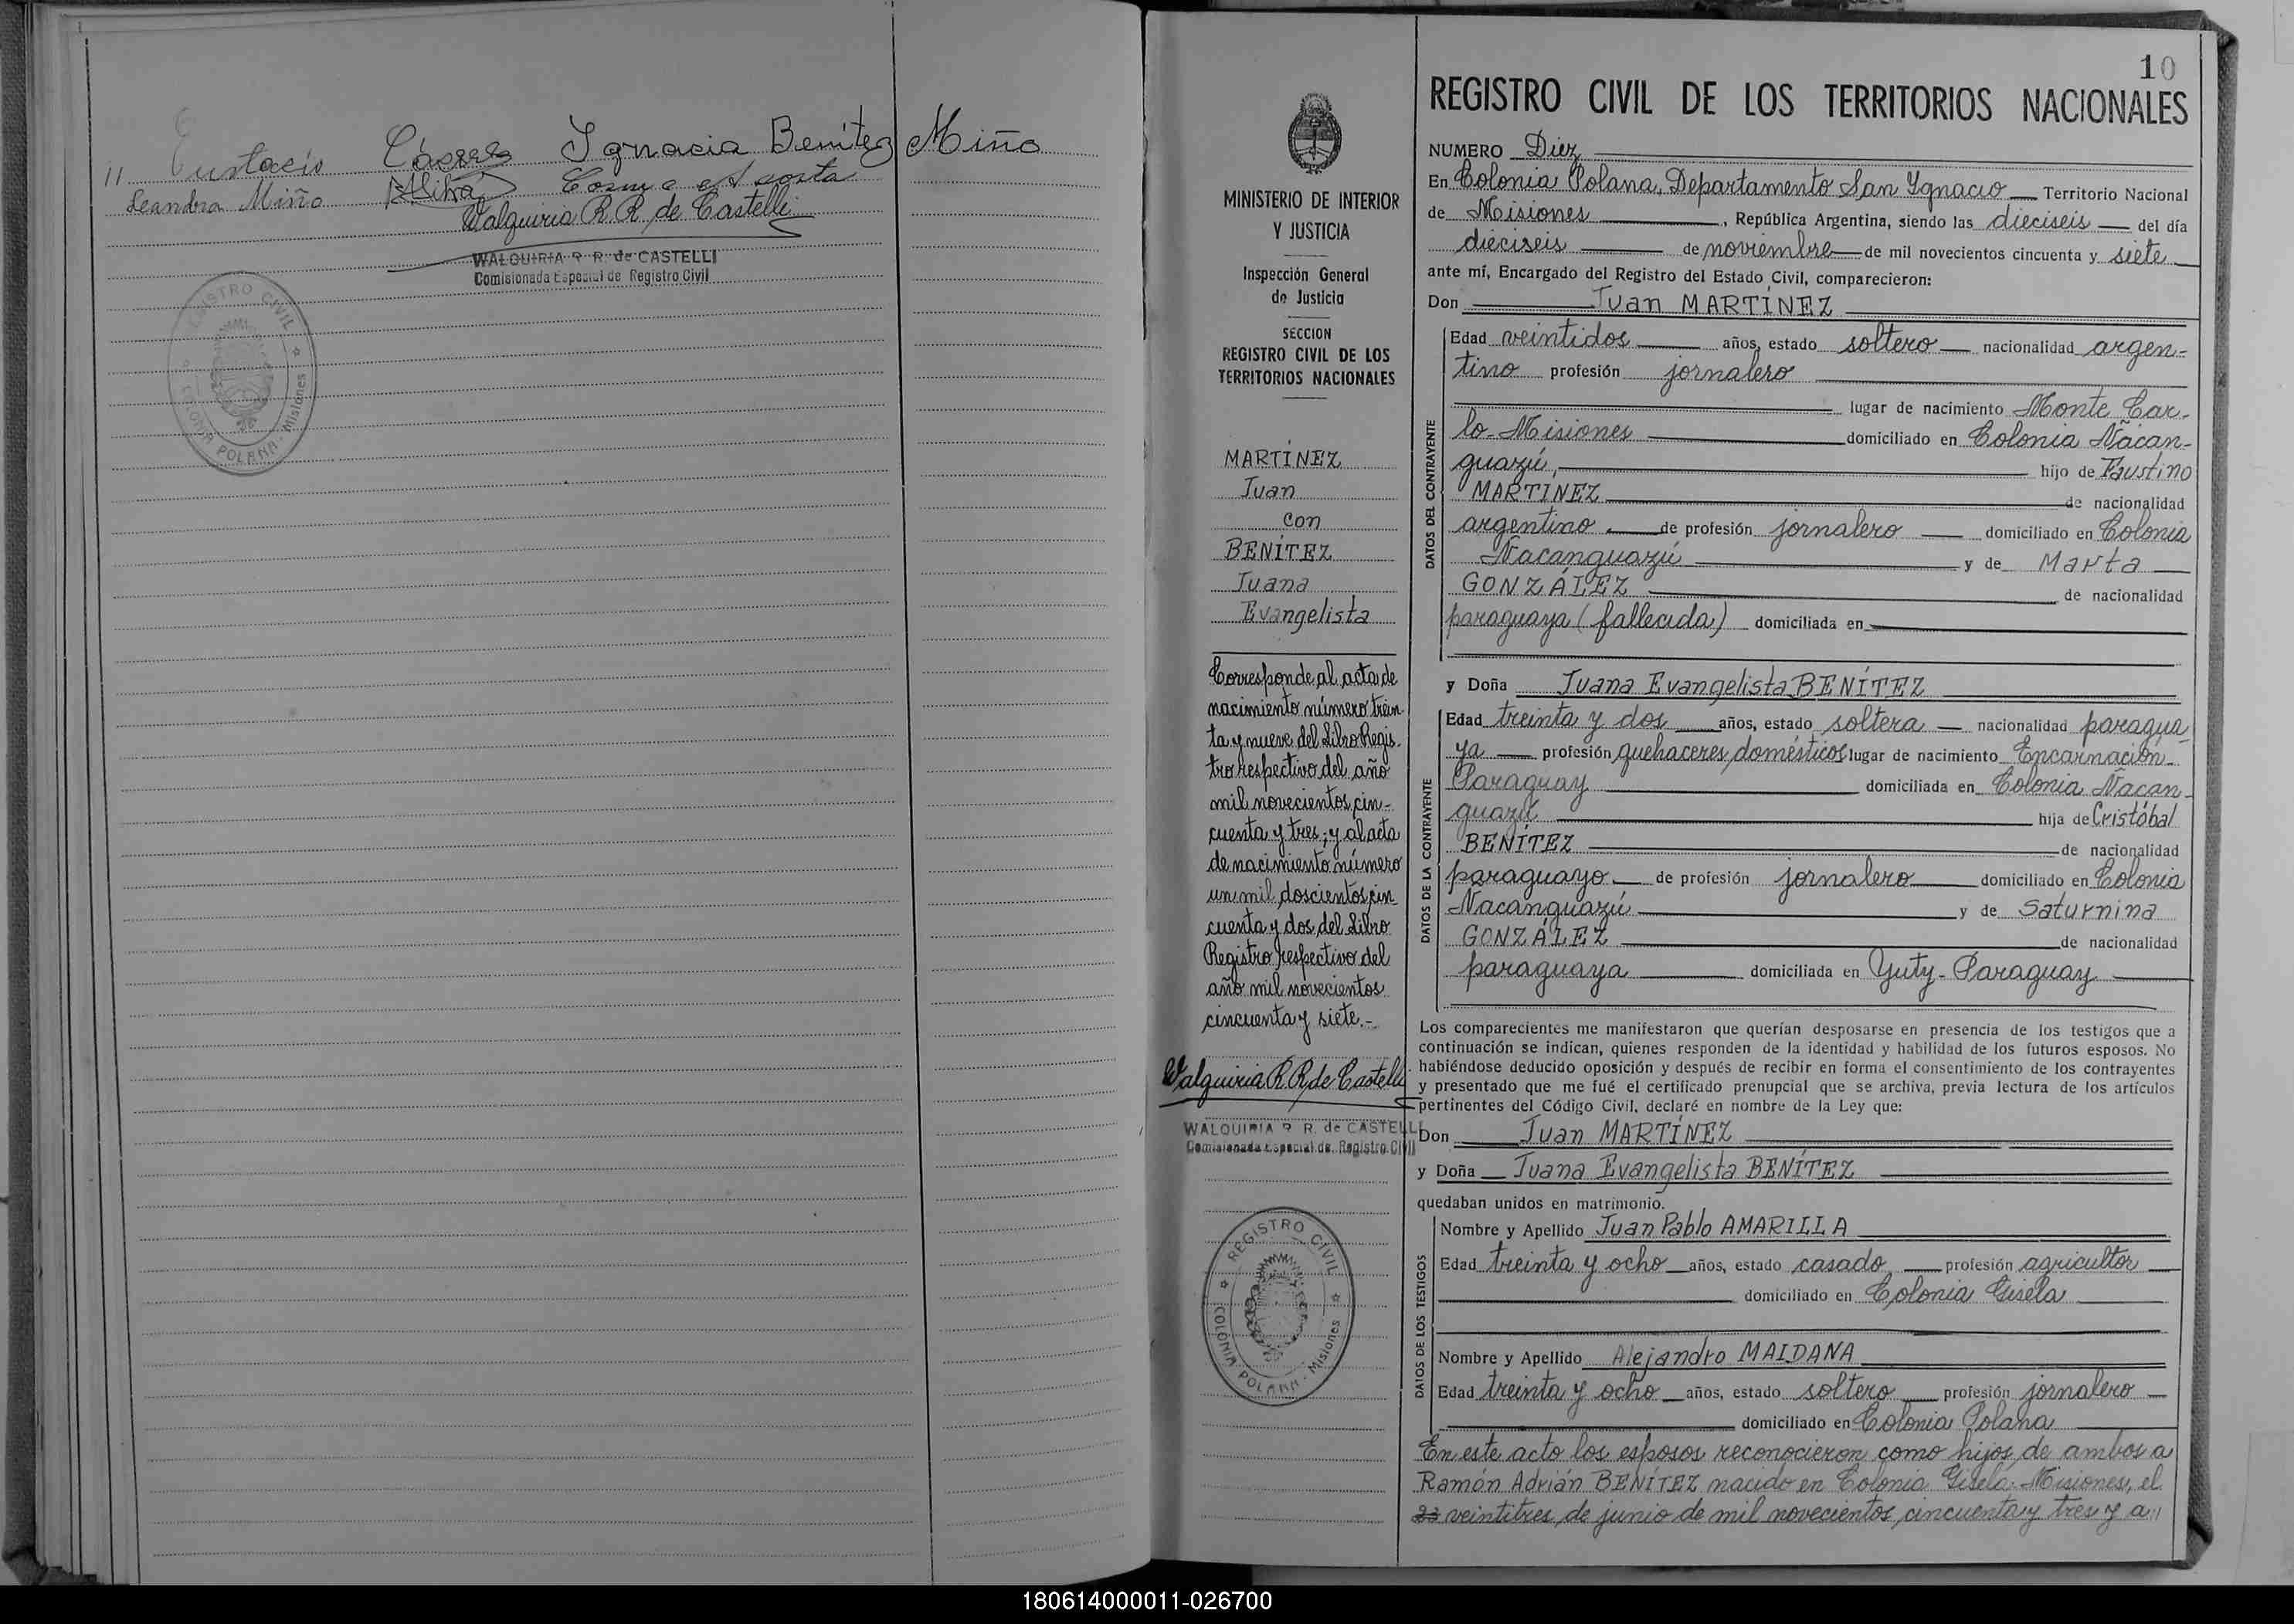 Eustacio Cáceres Ignacia Benítez Miño
Leandra Miño Cosme Acosta
Walquiria R. R. de Castelli
WALQUIRIA R. R. de CASTELLI
Comisionada Especial de Registro Civil
REGISTRO CIVIL
COLONIA POLANA - Misiones
10
MINISTERIO DE INTERIOR
Y JUSTICIA
Inspección General
de Justicia
SECCION
REGISTRO CIVIL DE LOS
TERRITORIOS NACIONALES
MARTÍNEZ
Juan
con
BENÍTEZ
Juana
Evangelista
Corresponde al acta de
nacimiento número trein-
ta y nueve del Libro Regis-
tro respectivo del año
mil novecientos cin-
cuenta y tres; y al acta
de nacimiento número
un mil doscientos cin
cuenta y dos del Libro
Registro respectivo del
año mil novecientos
cincuenta y siete.-
Walquiria R. R. de Castelli
WALQUIRIA R. R. de CASTELLI
Comisionada Especial de Registro Civil
REGISTRO CIVIL
COLONIA POLANA - Misiones
REGISTRO CIVIL DE LOS TERRITORIOS NACIONALES
NUMERO Diez
En Colonia Polana, Departamento San Ygnacio Territorio Nacional
de Misiones, República Argentina, siendo las dieciseis del día
dieciseis de noviembre de mil novecientos cincuenta y siete
ante mí, Encargado del Registro del Estado Civil, comparecieron:
Don Juan MARTÍNEZ
DATOS DEL CONTRAYENTE
Edad veintidos años, estado soltero nacionalidad argen-
tino profesión jornalero
lugar de nacimiento Monte Car-
lo-Misiones domiciliado en Colonia Ñacan-
guazú, hijo de Faustino
MARTÍNEZ de nacionalidad
argentino de profesión jornalero domiciliado en Colonia
Ñacanguazú y de Marta
GONZÁLEZ de nacionalidad
paraguaya (fallecida) domiciliada en
y Doña Juana Evangelista BENÍTEZ
DATOS DE LA CONTRAYENTE
Edad treinta y dos años, estado soltera nacionalidad paragua
ya profesión quehaceres domésticos lugar de nacimiento Encarnación-
Paraguay domiciliada en Colonia Ñacan-
guazú hija de Cristóbal
BENÍTEZ de nacionalidad
paraguayo de profesión jornalero domiciliado en Colonia
Ñacanguazú y de Saturnina
GONZÁLEZ de nacionalidad
paraguaya domiciliada en Yuty-Paraguay
Los comparecientes me manifestaron que querían desposarse en presencia de los testigos que a
continuación se indican, quienes responden de la identidad y habilidad de los futuros esposos. No
habiéndose deducido oposición y después de recibir en forma el consentimiento de los contrayentes
y presentado que me fué el certificado prenupcial que se archiva, previa lectura de los artículos
pertinentes del Código Civil, declaré en nombre de la Ley que:
Don Juan MARTÍNEZ
y Doña Juana Evangelista BENÍTEZ
quedaban unidos en matrimonio.
DATOS DE LOS TESTIGOS
Nombre y Apellido Juan Pablo AMARILLA
Edad treinta y ocho años, estado casado profesión agricultor
domiciliado en Colonia Gisela
Nombre y Apellido Alejandro MALDANA
Edad treinta y ocho años, estado soltero profesión jornalero
domiciliado en Colonia Polana
En este acto los esposos reconocieron como hijos de ambos a
Ramón Adrián BENÍTEZ nacido en Colonia Gisela-Misiones, el
veintitres de junio de mil novecientos cincuenta y tres y a //
180614000011-026700